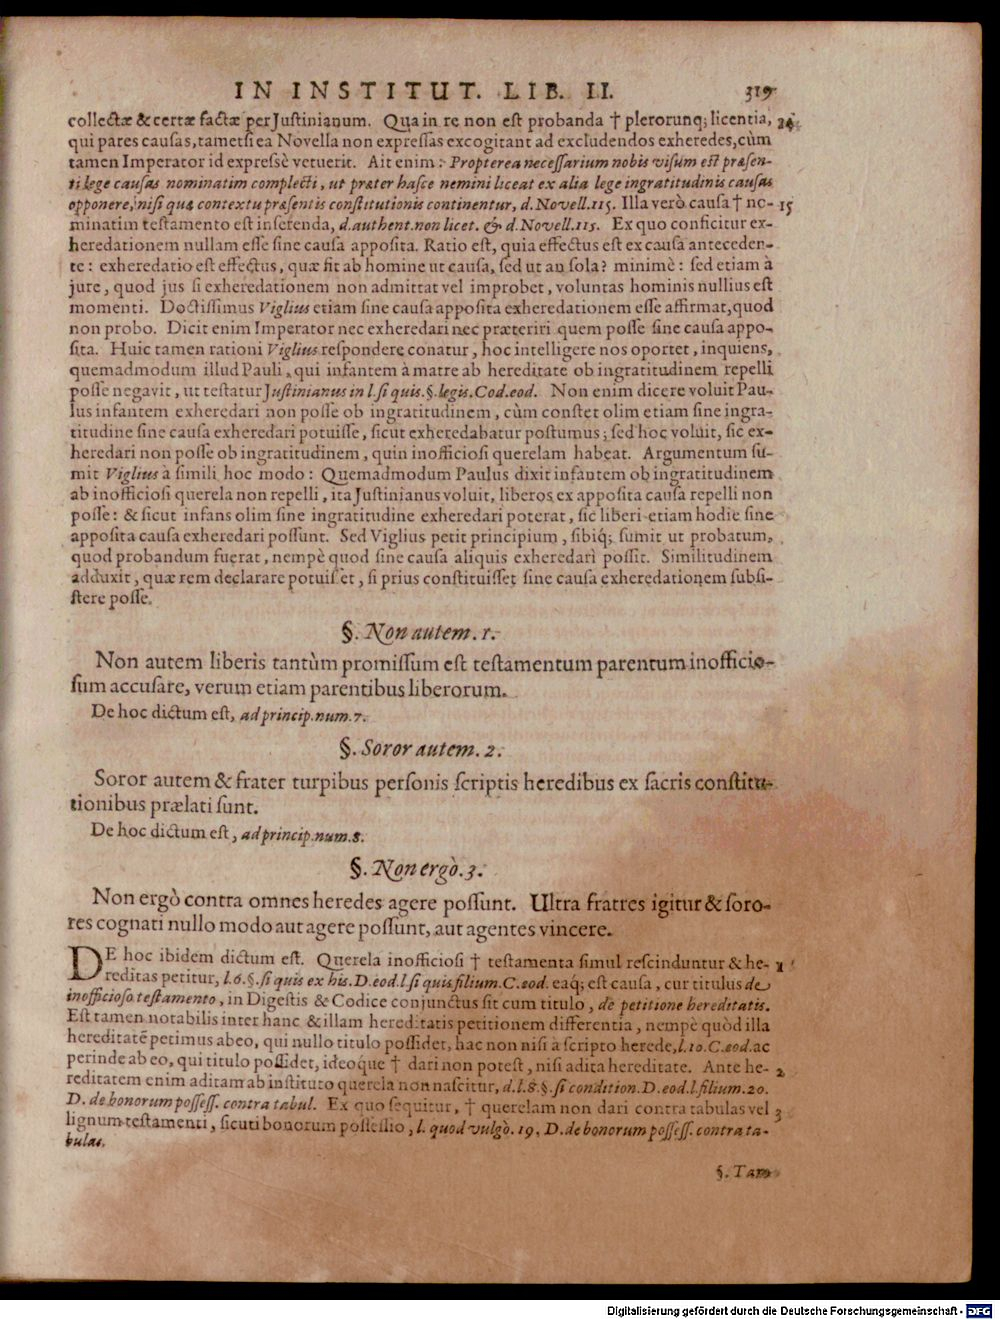 IN INSTITUT. LIB. II. 319
collectæ & certæ factæ per Justinianum. Qua in re non est probanda † plerorunq; licentia, 24
qui pares causas, tametsi ea Novella non expressas excogitant ad excludendos exheredes, cùm
tamen Imperator id expressè vetuerit. Ait enim: Propterea necessarium nobis visum est præsen-
ti lege causas nominatim complecti, ut præter hasce nemini liceat ex alia lege ingratitudinis causas
opponere, nisi quæ contextu præsentis constitutionis continentur, d. Novell. 115. Illa verò causa † no- 15
minatim testamento est inserenda, d. authent. non licet. & d. Novell. 115. Ex quo conficitur ex-
heredationem nullam esse sine causa apposita. Ratio est, quia effectus est ex causa anteceden-
te: exheredatio est effectus, quæ fit ab homine ut causa, sed ut an sola? minimè: sed etiam à
jure, quod jus si exheredationem non admittat vel improbet, voluntas hominis nullius est
momenti. Doctissimus Viglius etiam sine causa apposita exheredationem esse affirmat, quod
non probo. Dicit enim Imperator nec exheredari nec præteriri quem posse sine causa appo-
sita. Huic tamen rationi Viglius respondere conatur, hoc intelligere nos oportet, inquiens,
quemadmodum illud Pauli, qui infantem à matre ab hereditate ob ingratitudinem repelli
posse negavit, ut testatur Justinianus in l. si quis. §. legis. Cod. eod. Non enim dicere voluit Pau-
lus infantem exheredari non posse ob ingratitudinem, cùm constet olim etiam sine ingra-
titudine sine causa exheredari potuisse, sicut exheredabatur postumus; sed hoc voluit, sic ex-
heredari non posse ob ingratitudinem, quin inofficiosi querelam habeat. Argumentum su-
mit Viglius à simili hoc modo: Quemadmodum Paulus dixit infantem ob ingratitudinem
ab inofficiosi querela non repelli, ita Justinianus voluit, liberos ex apposita causa repelli non
posse: & sicut infans olim sine ingratitudine exheredari poterat, sic liberi etiam hodie sine
apposita causa exheredari possunt. Sed Viglius petit principium, sibiq; sumit ut probatum,
quod probandum fuerat, nempè quod sine causa aliquis exheredari possit. Similitudinem
adduxit, quæ rem declarare potuisset, si prius constituisset sine causa exheredationem subsi-
stere posse.
§. Non autem. 1.
Non autem liberis tantùm promissum est testamentum parentum inofficio-
sum accusare, verum etiam parentibus liberorum.
De hoc dictum est, ad princip. num. 7.
§. Soror autem. 2.
Soror autem & frater turpibus personis scriptis heredibus ex sacris constitu-
tionibus prælati sunt.
De hoc dictum est, ad princip. num. 8.
§. Non ergò. 3.
Non ergò contra omnes heredes agere possunt. Ultra fratres igitur & soro-
res cognati nullo modo aut agere possunt, aut agentes vincere.
DE hoc ibidem dictum est. Querela inofficiosi † testamenta simul rescinduntur & he- 1
reditas petitur, l. 6. §. si quis ex his. D. eod. l. si quis filium. C. eod. eaq; est causa, cur titulus de
inofficioso testamento, in Digestis & Codice conjunctus sit cum titulo, de petitione hereditatis.
Est tamen notabilis inter hanc & illam hereditatis petitionem differentia, nempè quòd illa
hereditatē petimus ab eo, qui nullo titulo possidet, hac non nisi à scripto herede, l. 10. C. eod. ac
perinde ab eo, qui titulo possidet, ideoque † dari non potest, nisi adita hereditate. Ante he- 2
reditatem enim aditam ab instituto querela non nascitur, d. l. 8. §. si condition. D. eod. l. filium. 20.
D. de bonorum possess. contra tabul. Ex quo sequitur, † querelam non dari contra tabulas vel 3
lignum testamenti, sicuti bonorum possessio, l. quod vulgò. 19. D. de bonorum possess. contra ta-
bulas.
§. Tam
Digitalisierung gefördert durch die Deutsche Forschungsgemeinschaft - DFG